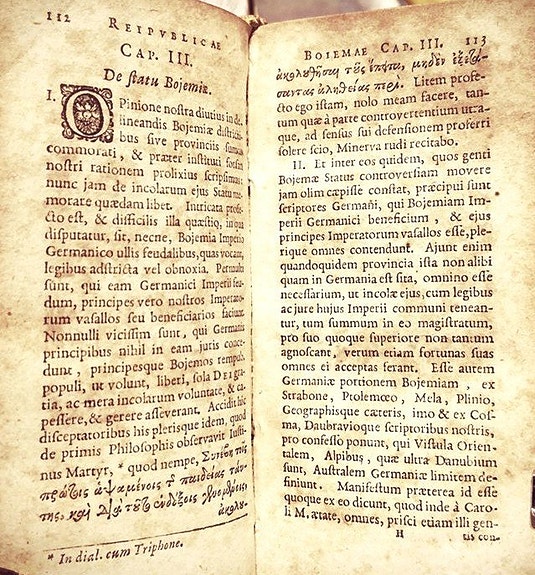 112 REIPVBLICAE
CAP. III.
De statu Bojemiæ.
I. OPinione nostra diutius in de-
lineandis Bojemiæ districti-
bus sive provinciis sumus
commorati, & præter instituti forsan
nostri rationem prolixius scripsimus:
nunc jam de incolarum ejus Statu me-
morate quædam libet. Intricata profe-
cto est, & difficilis illa quæstio, in qua
disputatur, sit, necne, Bojemia Imperio
Germanico ullis feudalibus, quas vocant,
legibus adstricta vel obnoxia. Permulti
sunt, qui eam Germanici Imperii feu-
dum, principes vero nostros Imperato-
rum vasallos seu beneficiarios faciunt.
Nonnulli vicissim sunt, qui Germanis
principibus nihil in eam juris conce-
dunt, principesque Bojemos tempore
populi, ut volunt, liberi, sola DEI gra-
tia, ac mera incolarum voluntate, & ca-
pessere, & gerere asseverant. Accidit hic
disceptatoribus his plerisque idem, quod
de primis Philosophis observavit Justi-
nus Martyr, * quod nempe,
* In dial. cum Triphone.
BOIEMAE CAP. III. 113
Litem profe-
cto ego istam, nolo meam facere, tan-
tum quæ à parte controvertentium utra-
que, ad sensus sui defensionem proferri
solere scio, Minerva rudi recitabo.
II. Et inter eos quidem, quos genti
Bojemæ Status controversiam movere
jam olim cœpisse constat, præcipui sunt
scriptores Germani, qui Bojemiam Im-
perii Germanici beneficium, & ejus
principes Imperatorum vasallos esse, ple-
rique omnes contendunt. Ajunt enim
quandoquidem provincia ista non alibi
quam in Germania est sita, omnino esse
necessarium, ut incolæ ejus, cum legibus
ac jure hujus Imperii communi tenean-
tur, tum summum in eo magistratum,
pro suo quoque superiore non tantum
agnoscant, verum etiam fortunas suas
omnes ei acceptas ferant. Esse autem
Germaniæ portionem Bojemiam, ex
Strabone, Ptolemœo, Mela, Plinio,
Geographisque cæteris, imo & ex Cos-
ma, Daubravioque scriptoribus nostris,
pro confesso ponunt, qui Vistula Orien-
talem, Alpibus, quæ ultra Danubium
sunt, Australem Germaniæ limitem de-
finiunt. Manifestum præterea id esse
quoque ex eo dicunt, quod inde à Caro-
li M. ætate, omnes, prisci etiam illi gen-
H tis con-